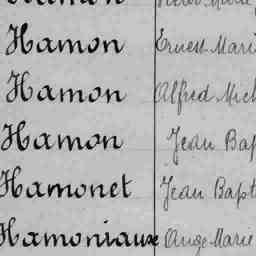 Hamon Ernest Mari
Hamon Alfred Mich
Hamon Jean Bap
Hamonet Jean Bapt
Hamoniaux Ange Marie